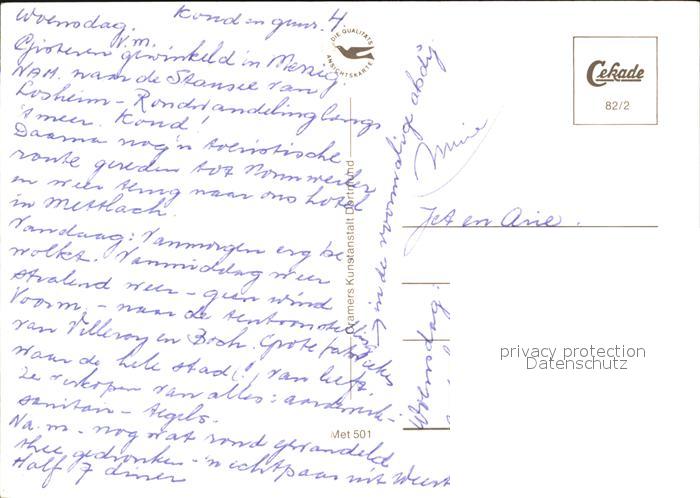 Woensdag. Koud en guur. 4.
Gisteren v.m. gewinkeld in Merzig.
NAM. naar de Stausee van
Losheim - Rondwandeling langs
't meer. Koud!
Daarna nog 'n toeristische
route gereden tot Nonnweiler
en weer terug naar ons hotel
in Mettlach.
Vandaag: Vanmorgen erg be
wolkt. Vanmiddag weer
stralend weer - geen wind
Voorm. - naar de tentoonstelling
van Villeroy en Boch. Grote fabrieken
waar de hele stad (!) van leeft.
Ze verkopen van alles: aardewerk -
sanitair - tegels.
Na.m. - nog wat rond gewandeld
thee gedronken - 'n echtpaar uit Weert
Half 7 diner
DIE QUALITÄTS
ANSICHTSKARTE
Cramers Kunstanstalt Dortmund
Met 501
→ in de voormalige abdij
Woensdag.
Cekade
82/2
Mine
Jet en Arie.
privacy protection
Datenschutz